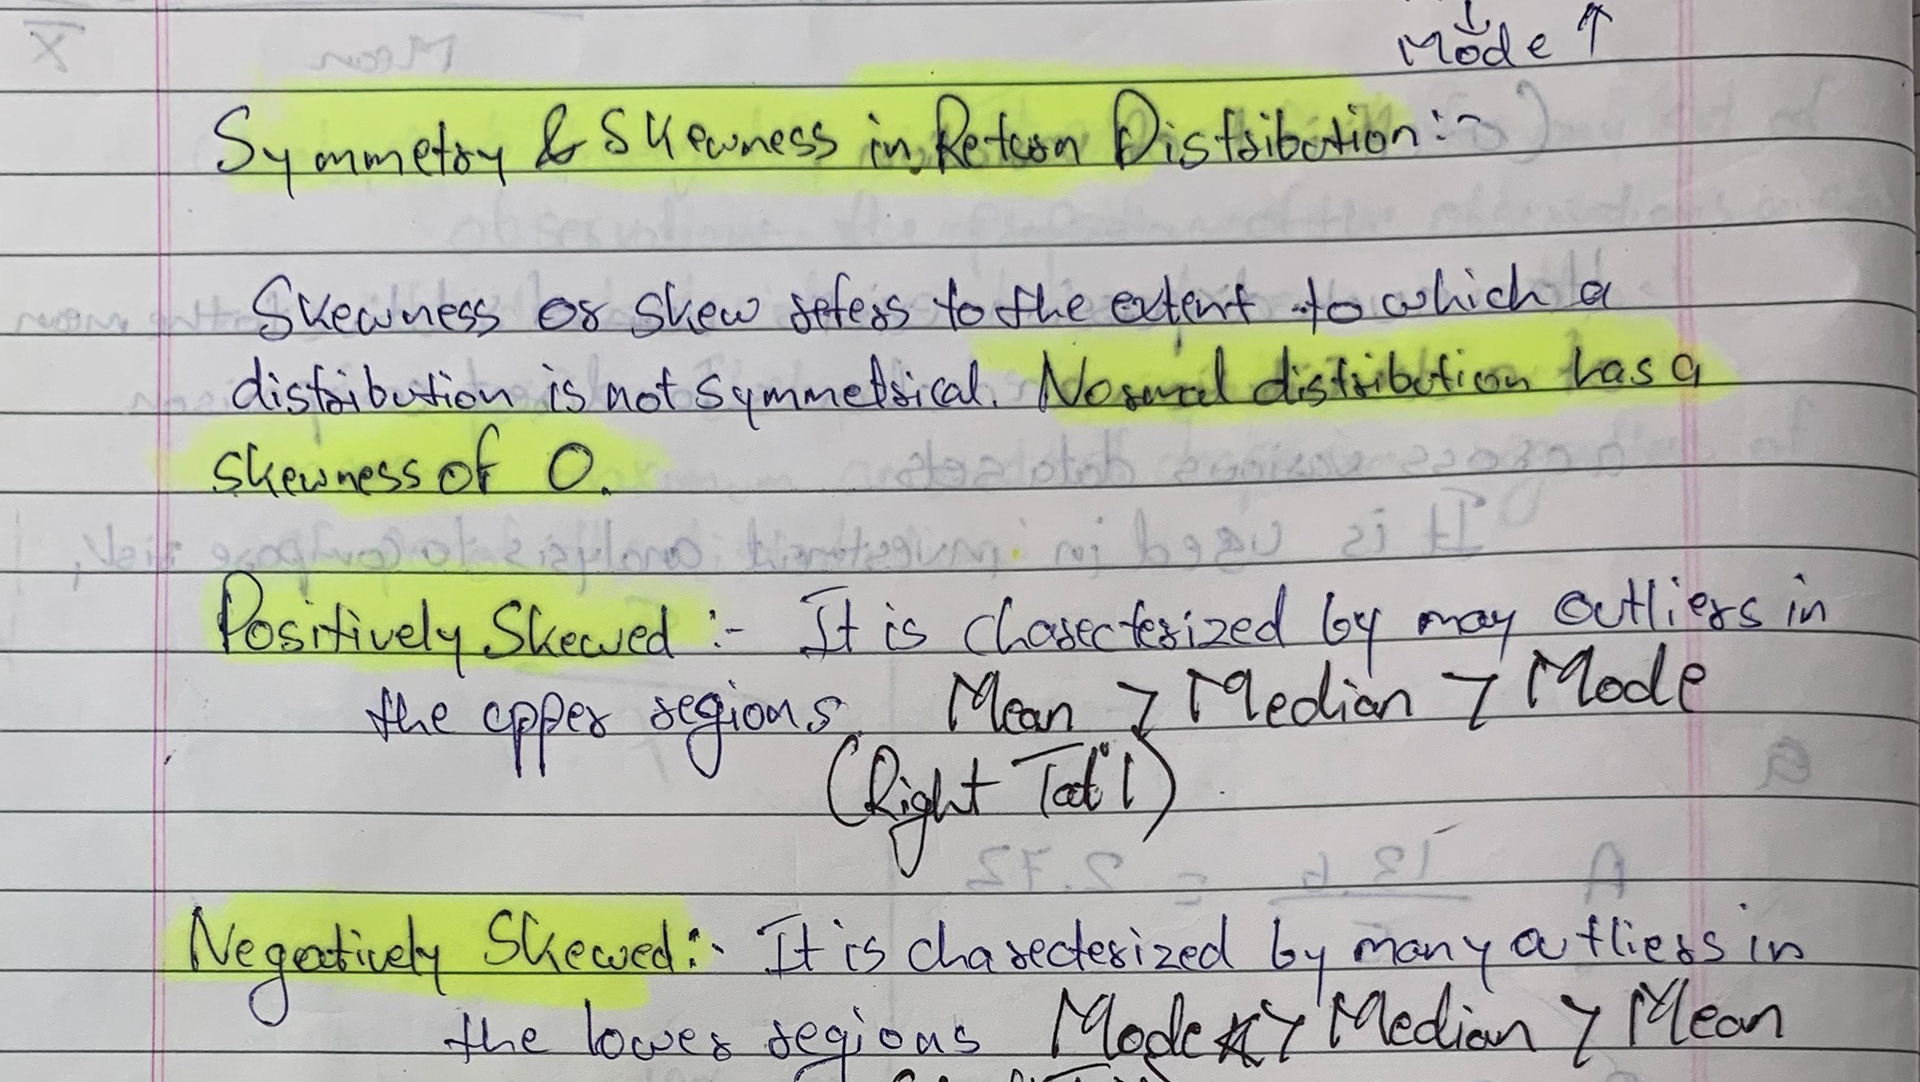 Mode ↑
Symmetry & Skewness in Return Distribution :-
Skewness or skew refers to the extent to which a
distribution is not symmetrical. Normal distribution has a
skewness of 0.
Positively Skewed :- It is charecterized by may outliers in
the upper regions. Mean > Median > Mode
(Right Tail)
Negatively Skewed :- It is charecterized by many outliers in
the lower regions Mode > Median > Mean